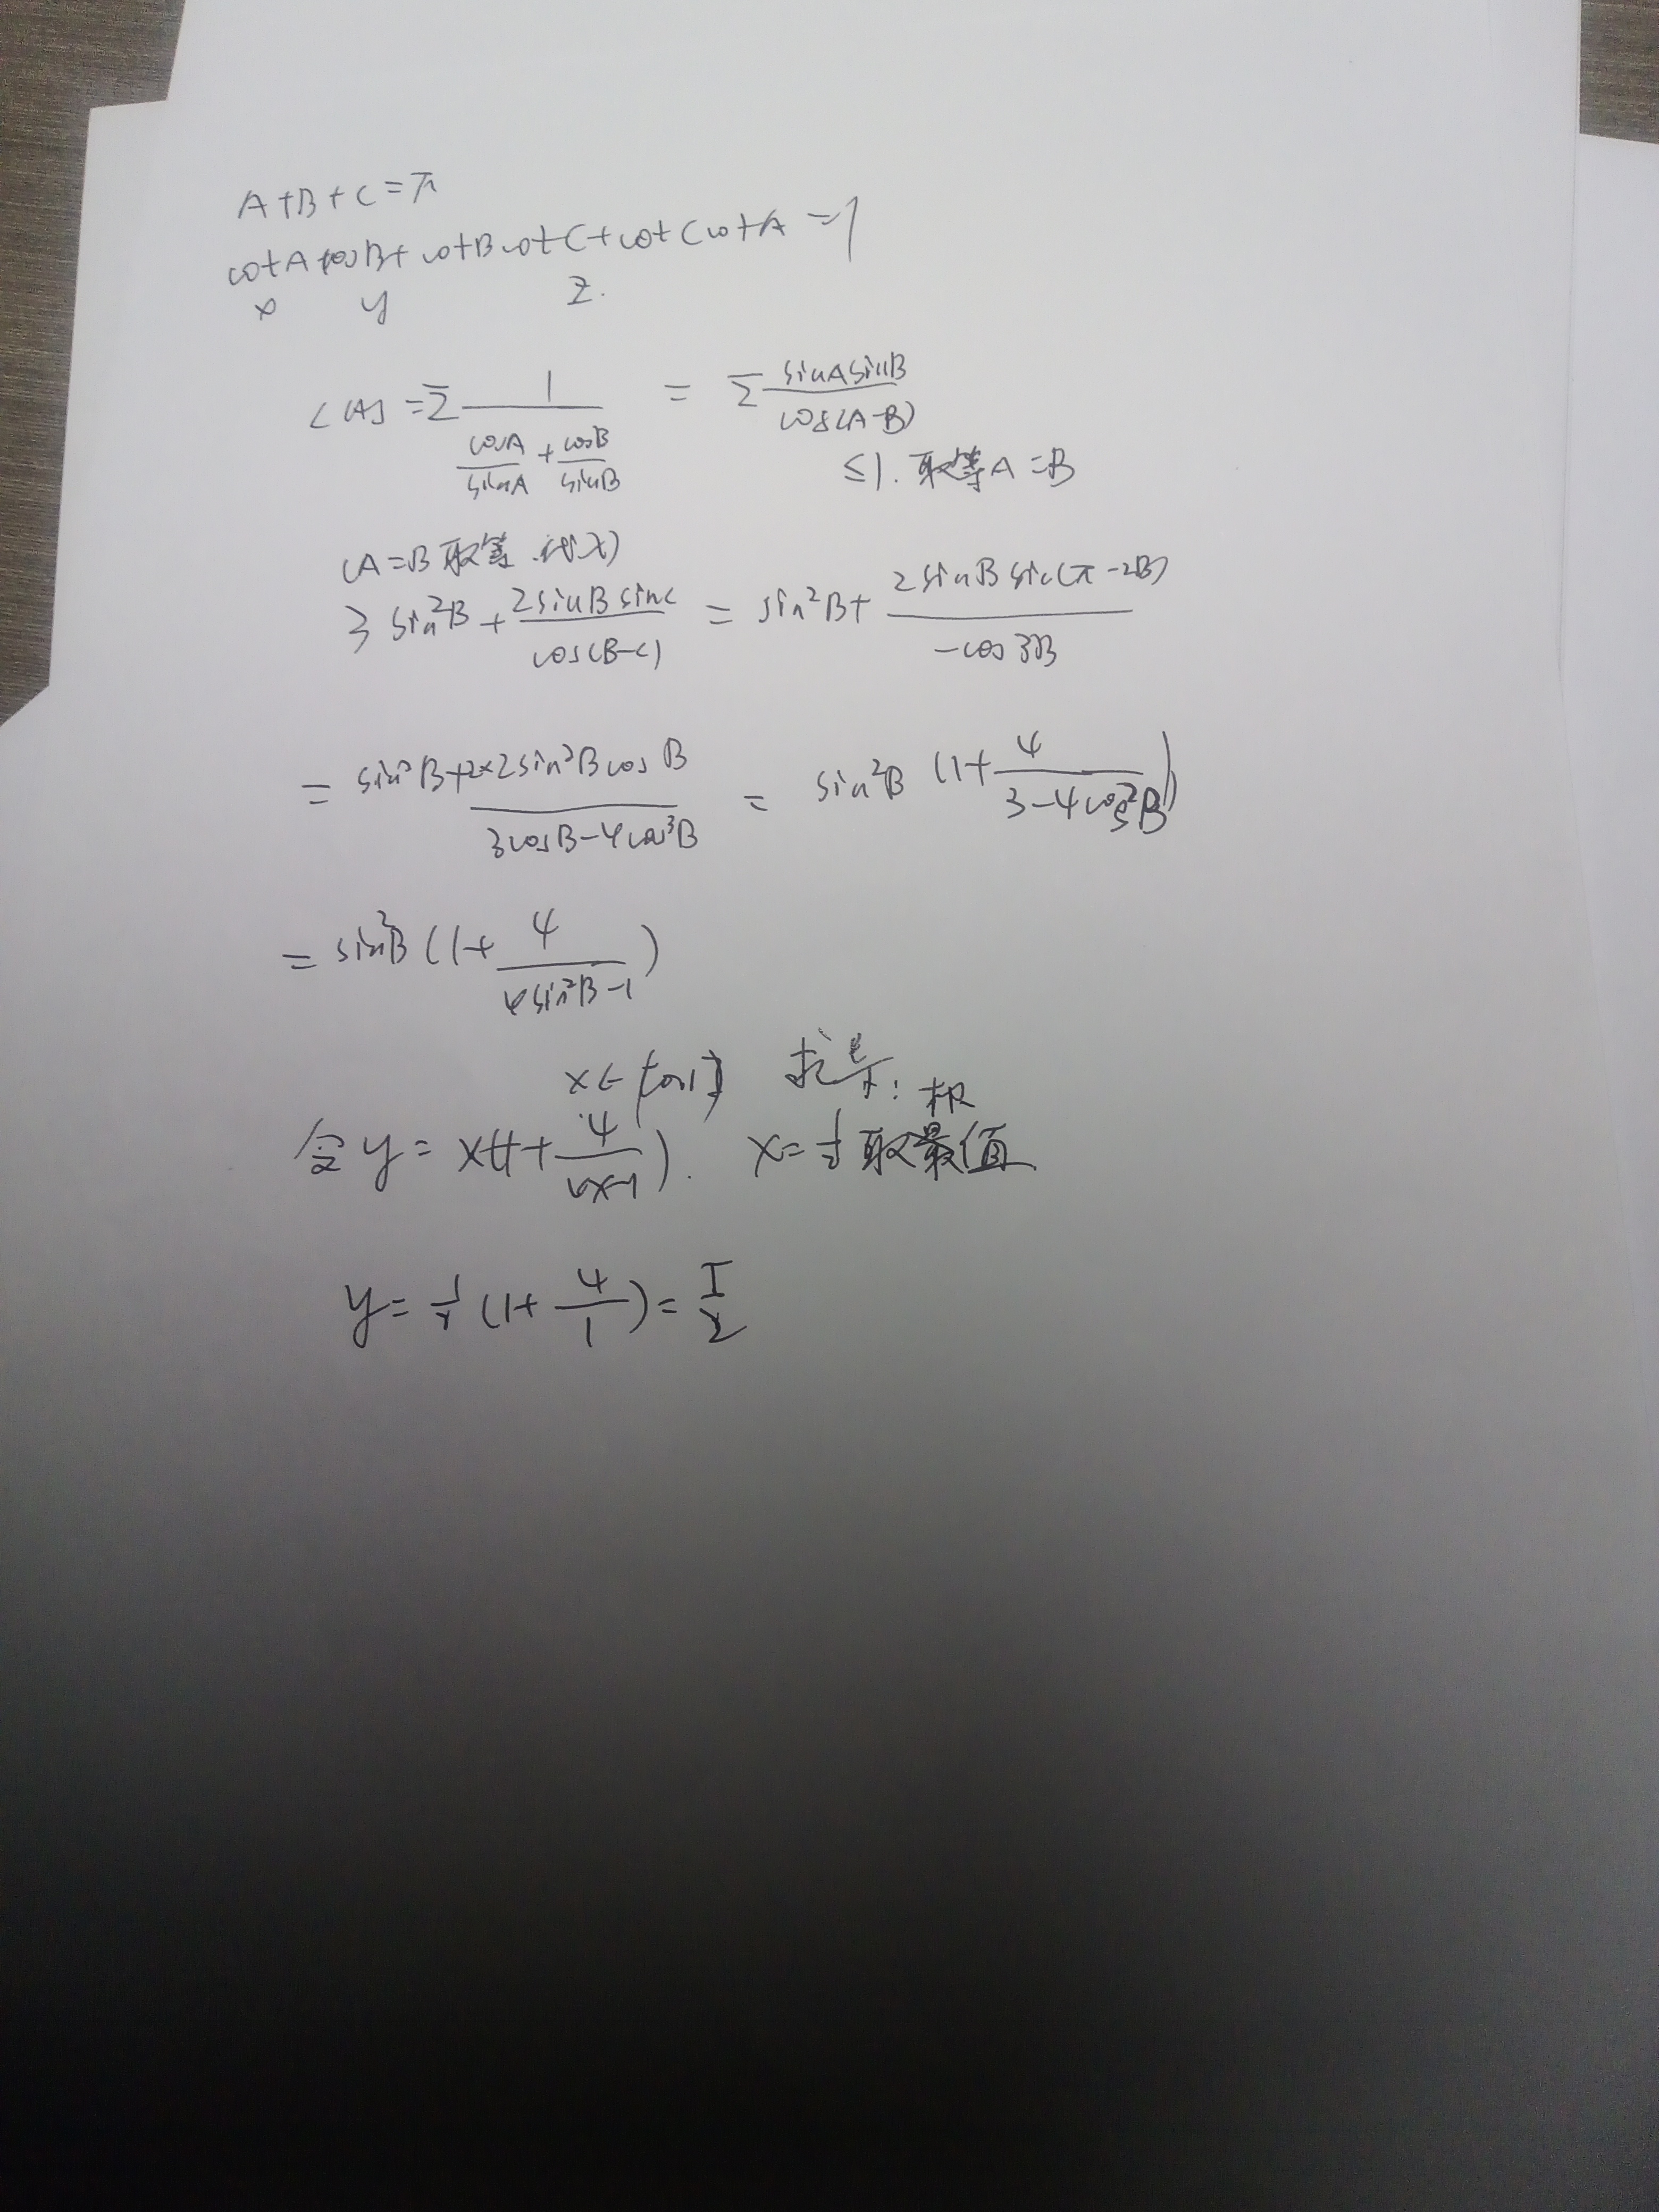 A+B+C=π
cotA cosB+cotBcotC+cotCcotA=1
x y z.
=Σ 1/(cosA/sinA + cosB/sinB) = Σ sinAsinB/cos(A-B)
≤1. 取等A=B
(A=B取等.代入)
≥ sin²B + 2sinBsinC/cos(B-C) = sin²B + 2sinBsin(π-2B)/-cos3B
= sin²B + 2×2sin²BcosB/3cosB-4cos³B = sin²B (1+ 4/3-4cos²B)
= sin²B (1+ 4/4sin²B-1)
x∈ 求导: 极
令 y = x(1+ 4/4x-1). x= 取最值.
y= (1+ 4/1)=